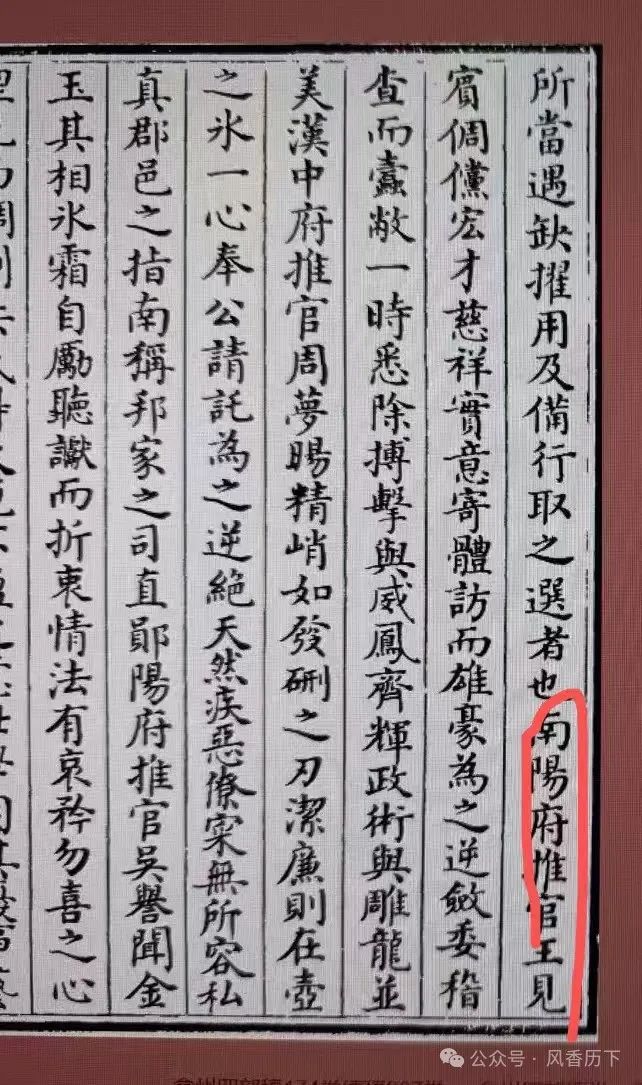 所當遇缺擢用及備行取之選者也南陽府推官王見
賔倜儻宏才慈祥實意寄體訪而雄豪為之逆斂委稽
查而蠹敝一時悉除搏擊與威鳳齊輝政術與雕龍並
美漢中府推官周夢暘精峭如發硎之刃潔廉則在壺
之氷一心奉公請託為之逆絕天然疾惡僚寀無所容私
真郡邑之指南稱邦家之司直鄖陽府推官吳譽聞金
玉其相氷霜自勵聽讞而折衷情法有哀矜勿喜之心
公众号 · 风香历下